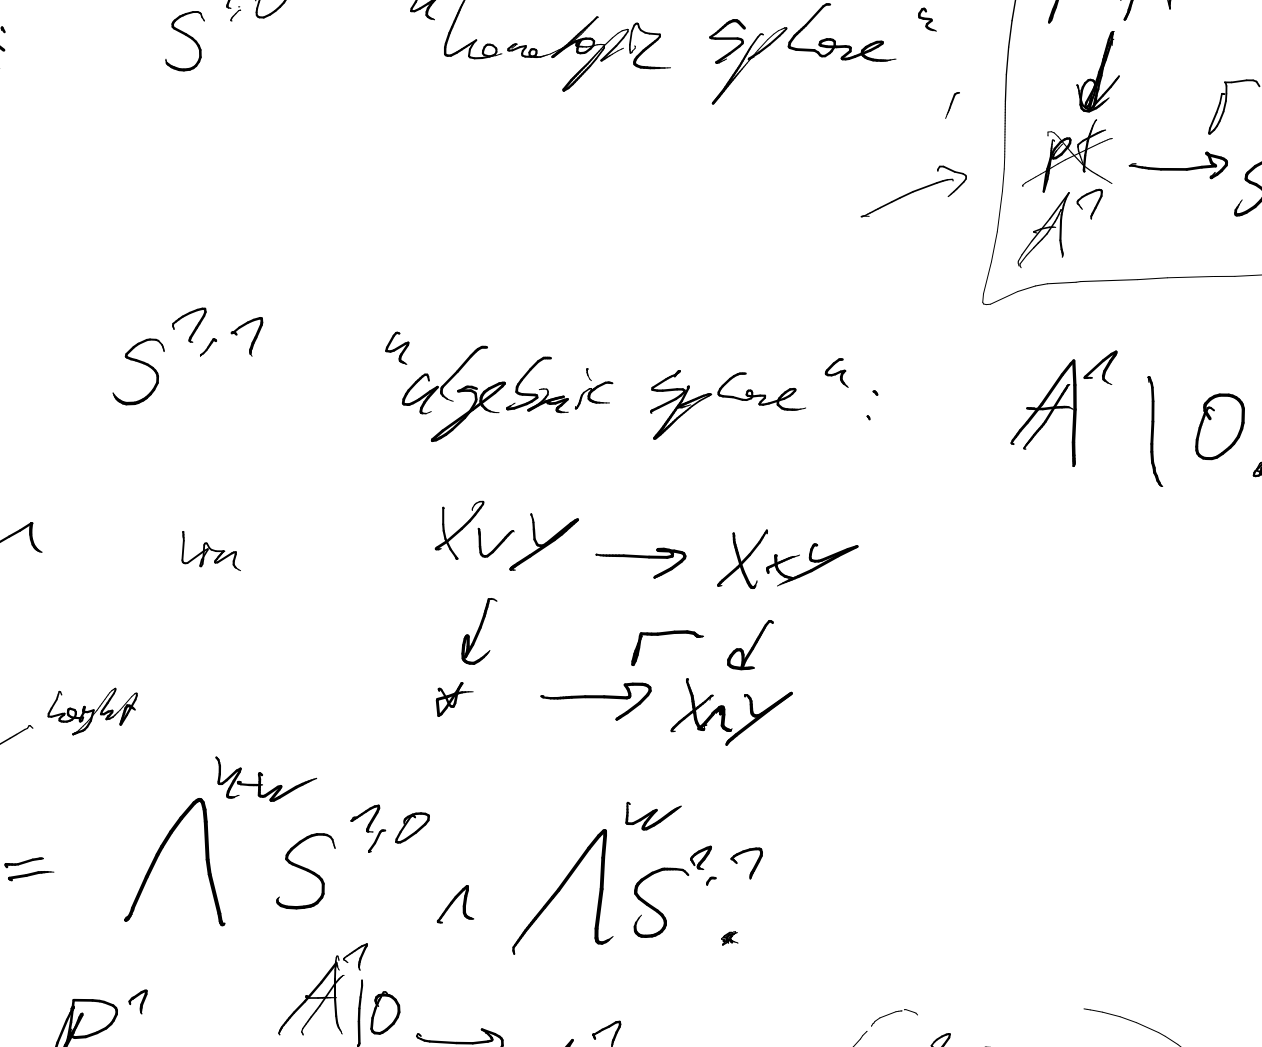 S^{1,0} "homotopic sphere"
pt → S
A^1
S^{1,1} "algebraic sphere": A^1 | 0.
∧ von X ∨ Y → X × Y
* → X ∧ Y
weight
= ∧^{n-w} S^{1,0} ∧ ∧^w S^{1,1}.
P^1 A^1|0 →